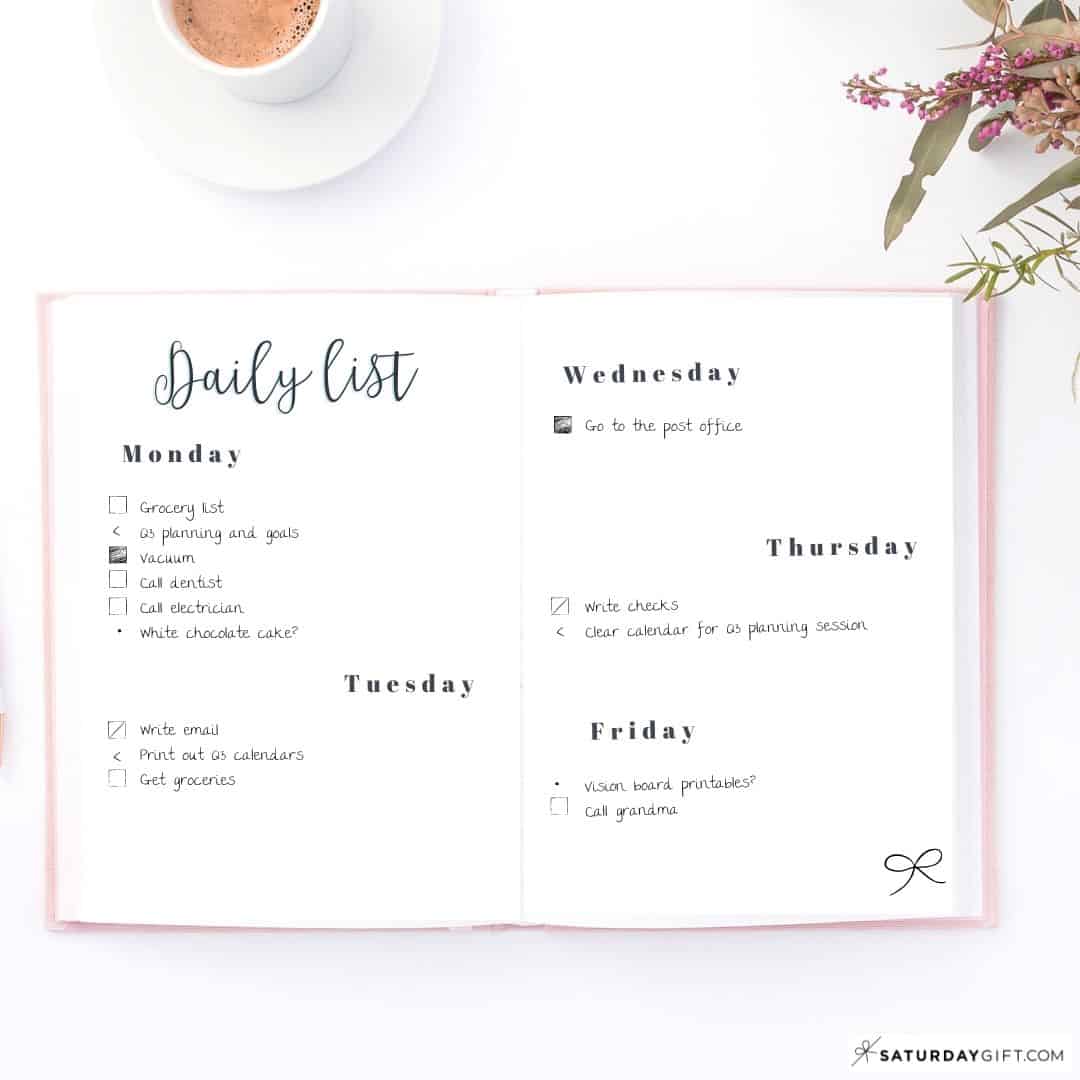 Daily list
Monday
Grocery list
< Q3 planning and goals
Vacuum
Call dentist
Call electrician
• White chocolate cake?
Tuesday
Write email
< Print out Q3 calendars
Get groceries
Wednesday
Go to the post office
Thursday
Write checks
< Clear calendar for Q3 planning session
Friday
• Vision board printables?
Call grandma
SATURDAYGIFT.COM